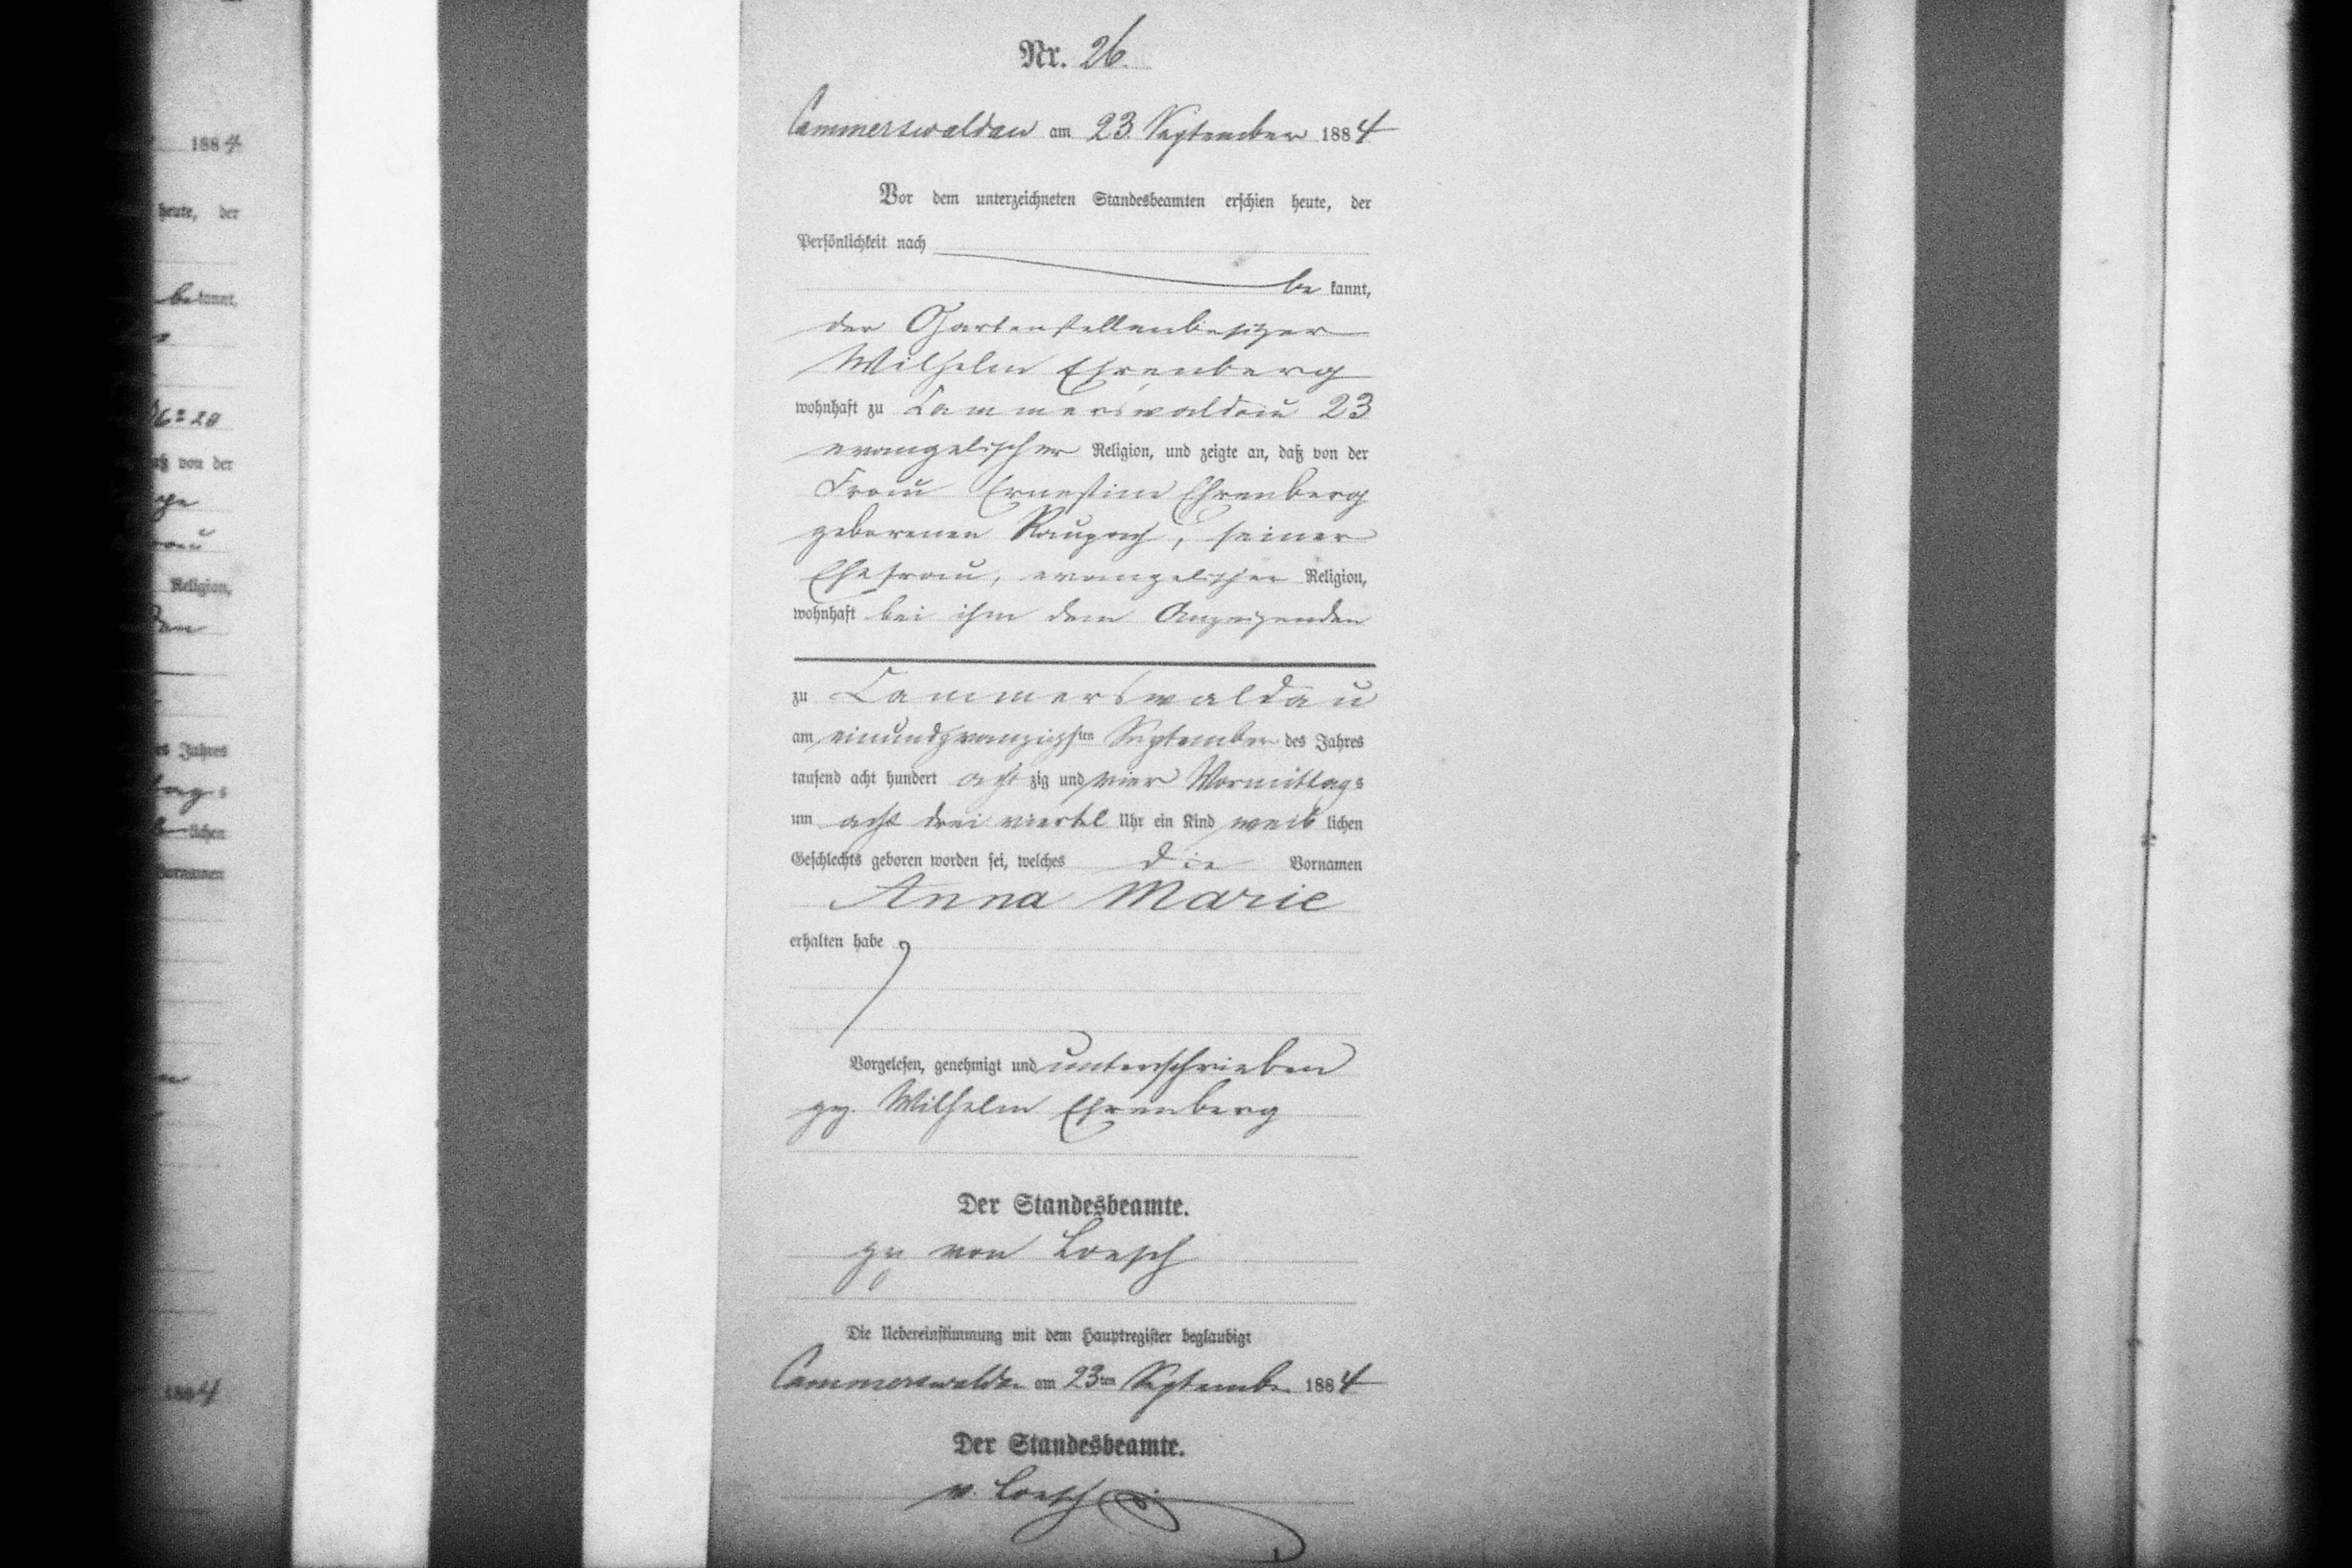 188 4
heute, der
be kannt,
von der
Religion,
des Jahres
lichen
Vornamen
188 4
Nr. 26.
Cammerswaldau am 23. September 1884
Vor dem unterzeichneten Standesbeamten erschien heute, der
Persönlichkeit nach
be kannt,
der Gartenstellenbesitzer
Wilhelm Ehrenberg
wohnhaft zu Cammerswaldau 23
evangelischer Religion, und zeigte an, daß von der
Frau Ernestine Ehrenberg
geborenen Raupach, seiner
Ehefrau, evangelischer Religion,
wohnhaft bei ihm dem Anzeigenden
zu Cammerswaldau
am einundzwanzigsten September des Jahres
tausend acht hundert acht zig und vier Vormittags
um acht drei viertel Uhr ein Kind weib lichen
Geschlechts geboren worden sei, welches die Vornamen
Anna Marie
erhalten habe
Vorgelesen, genehmigt und unterschrieben
gez. Wilhelm Ehrenberg
Der Standesbeamte.
gez von Loesch
Die Uebereinstimmung mit dem Hauptregister beglaubigt
Cammerswaldau am 23ten September 1884
Der Standesbeamte.
v. Loesch